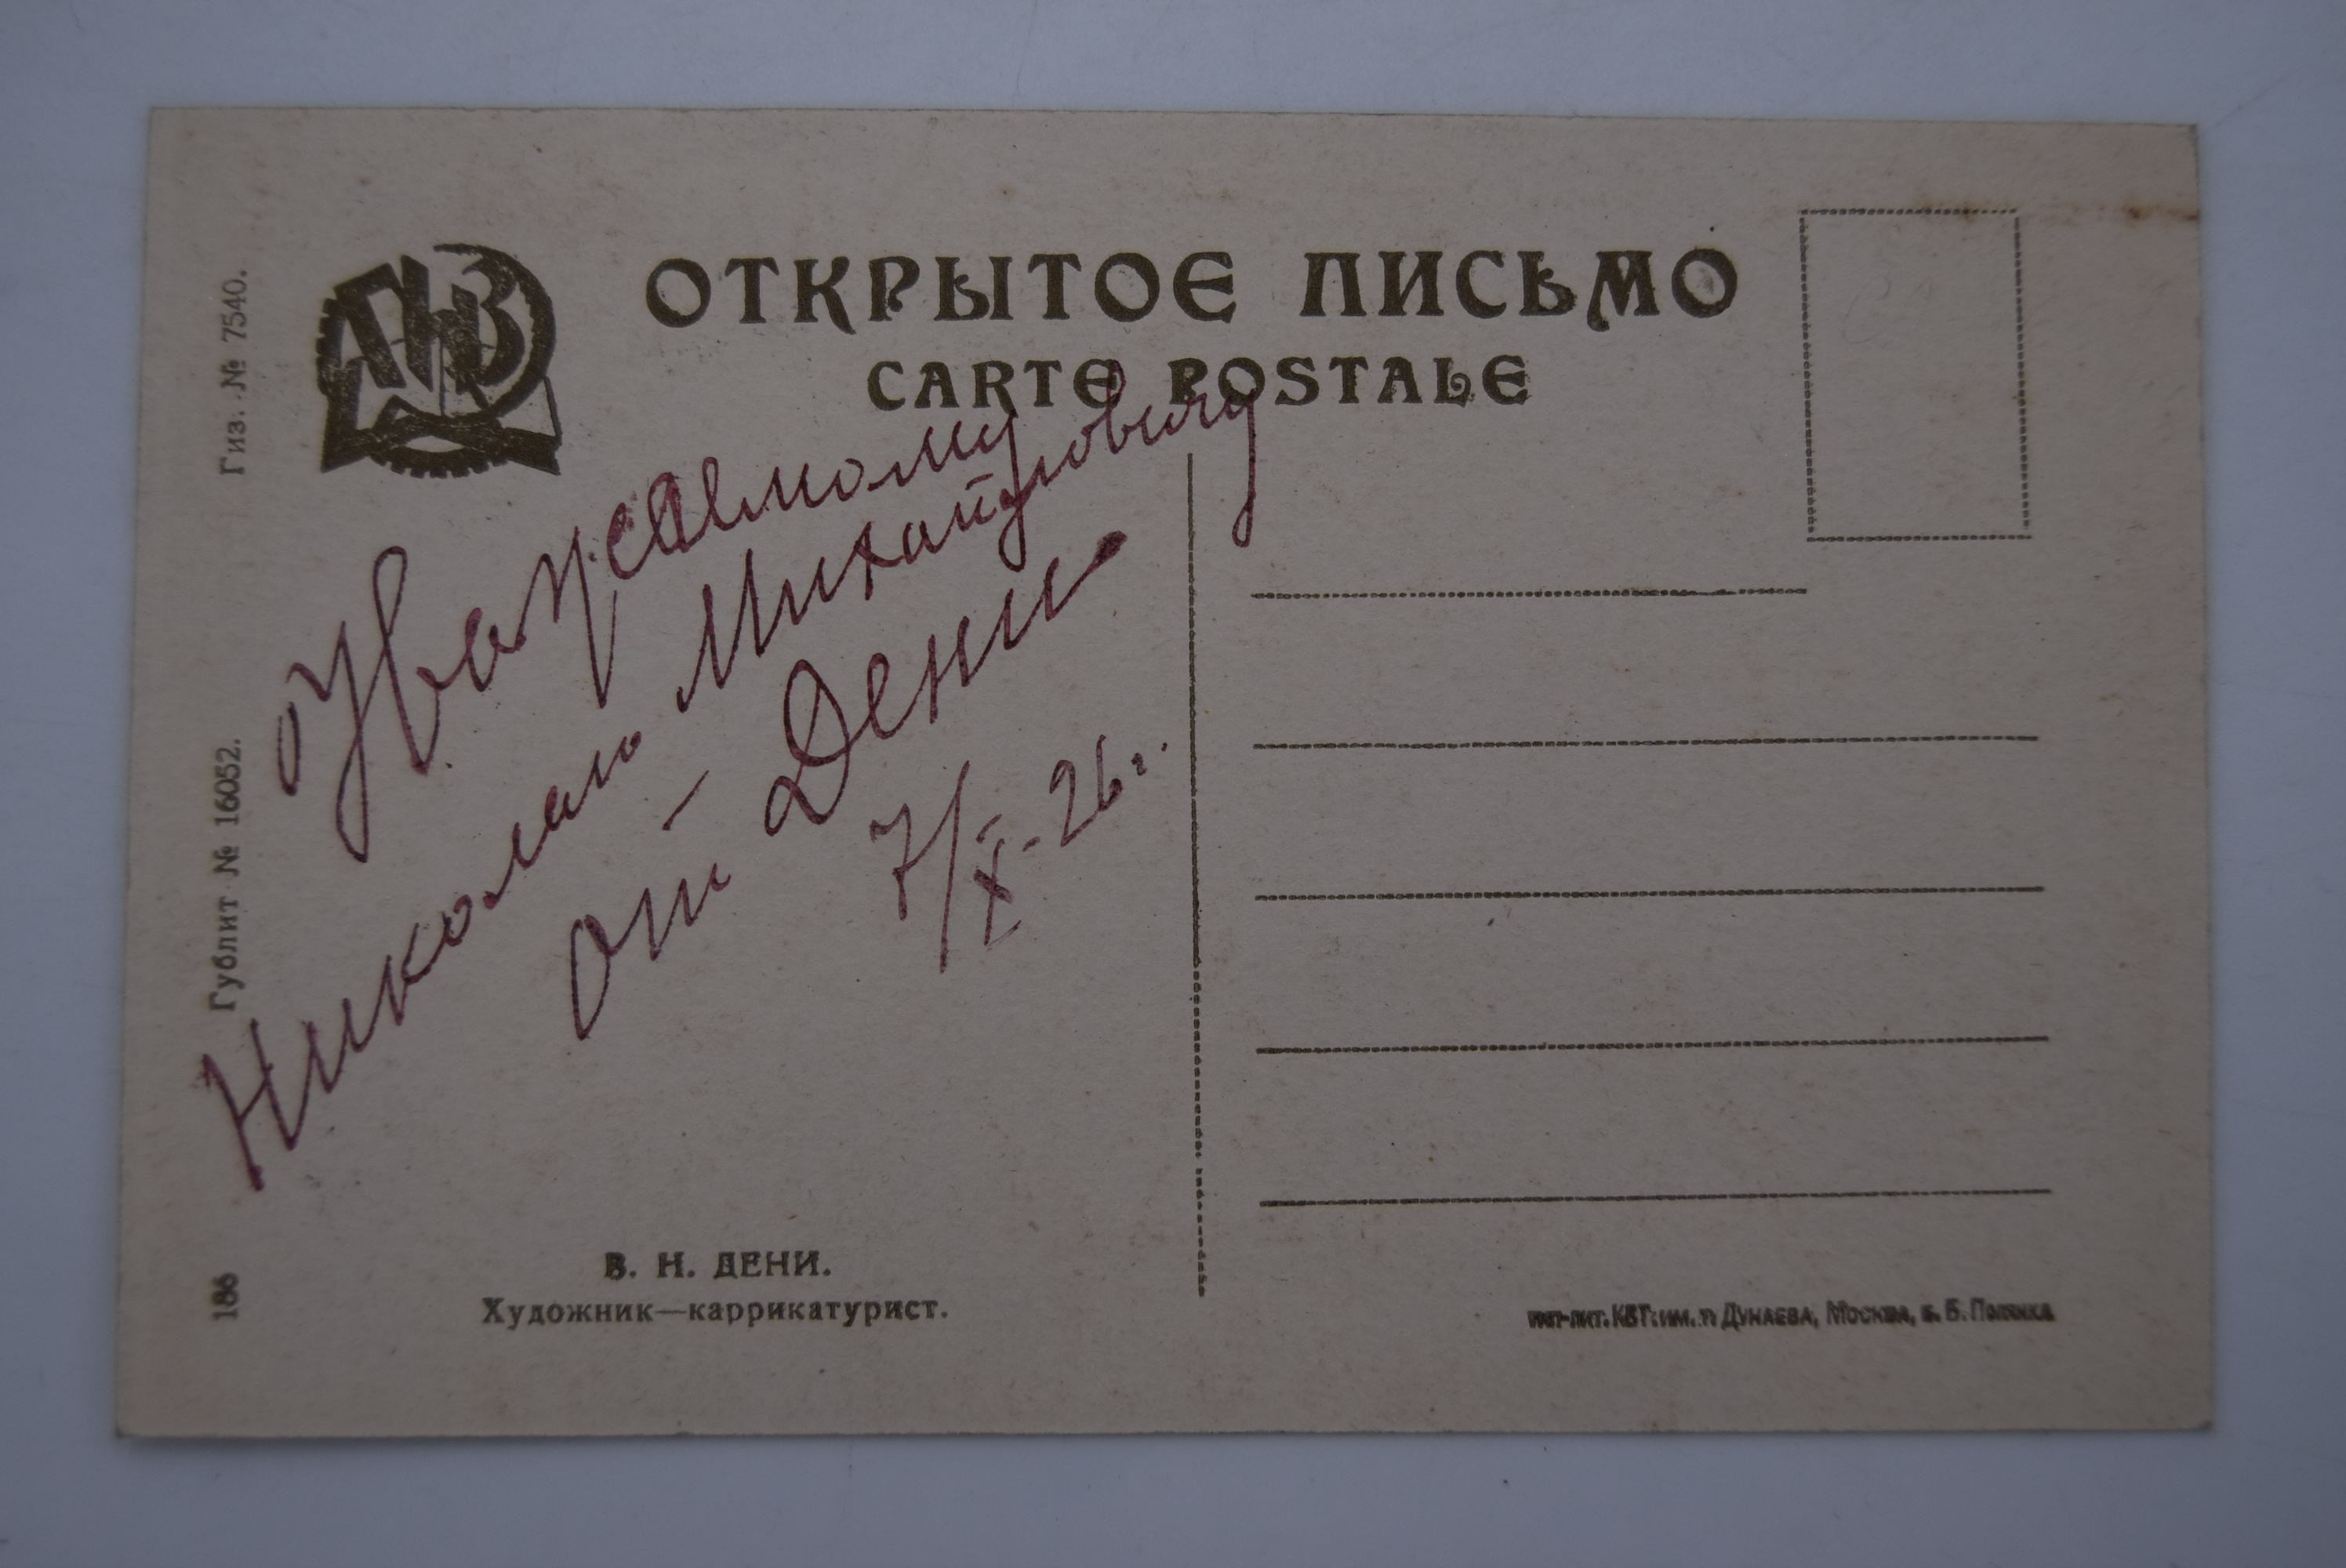 ГИЗ
ОТКРЫТОЕ ПИСЬМО
CARTE POSTALE
Гиз. № 7540.
Гублит № 16052.
186
Уважаемому
Николаю Михайловичу
от Дени
7/X-26г.
В. Н. ДЕНИ.
Художник—каррикатурист.
ТИП-ЛИТ. КВТ. ИМ. т. ДУНАЕВА, МОСКВА, Б. ПОЛЯНКА